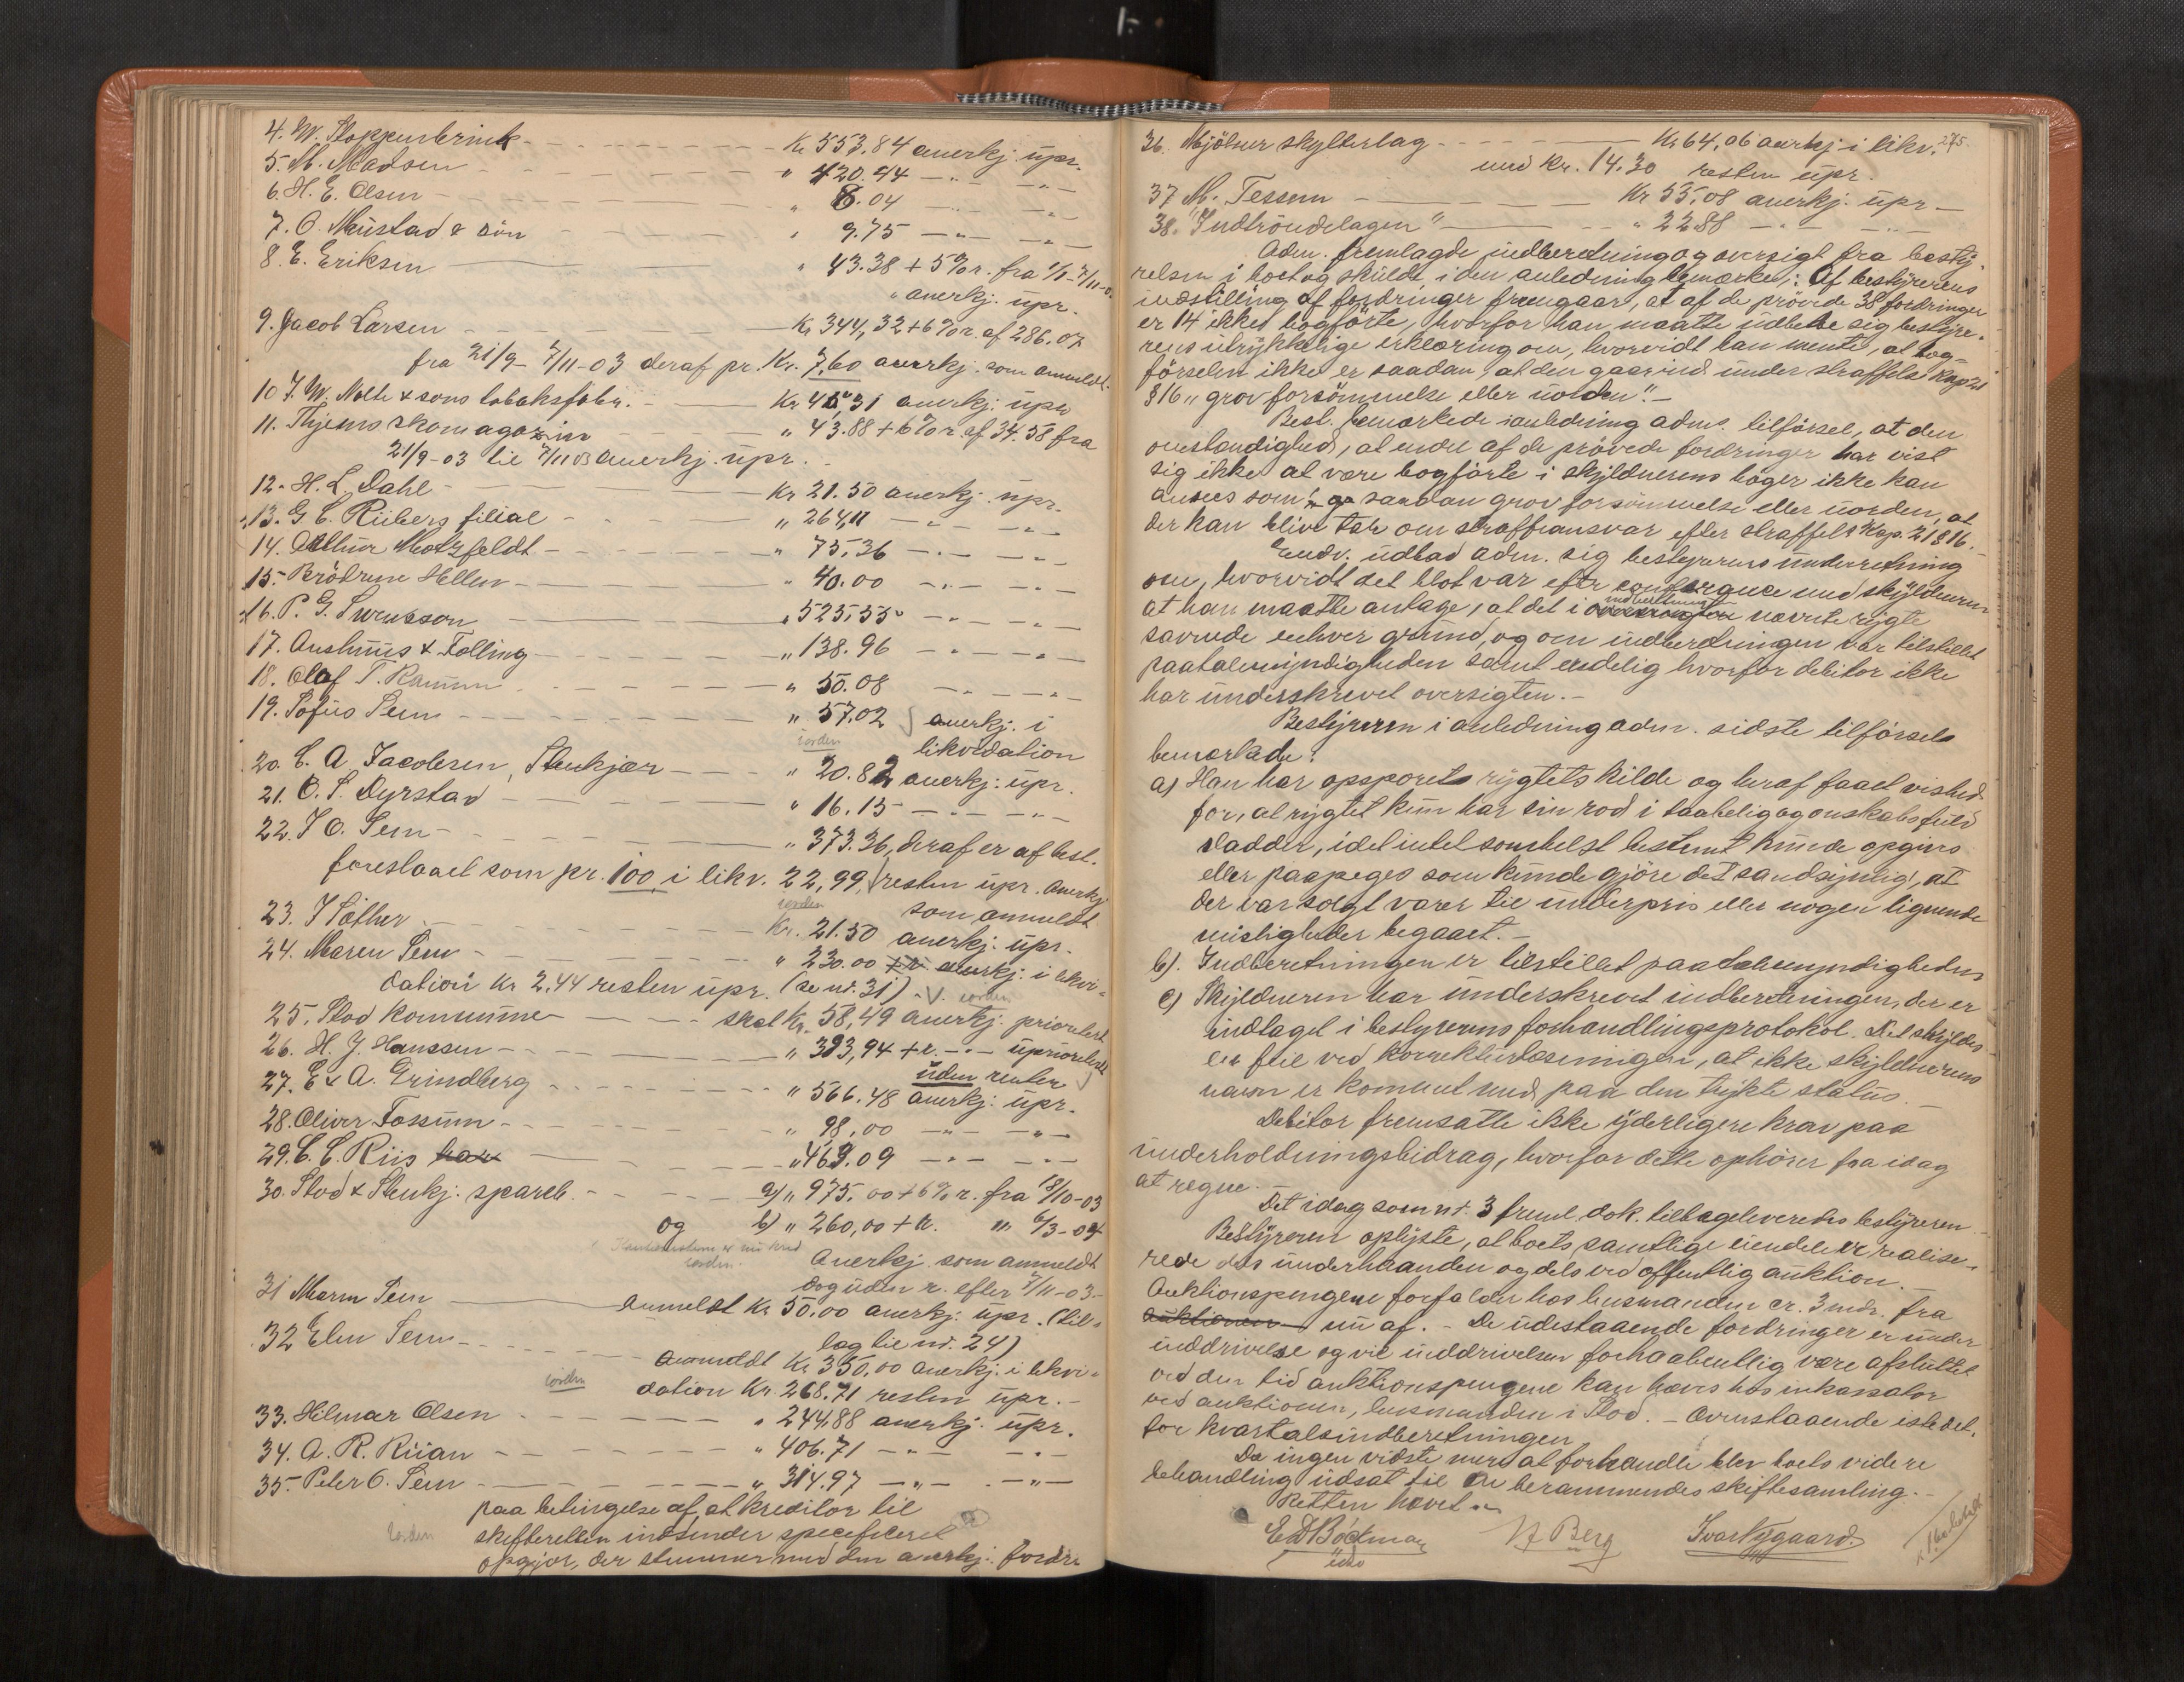 4. W. Stoppenbrink - - - Kr 553.84 anerkj. upr.
5. M. Madsen - - - " 420.44 -"- -"-
6. H. E. Olsen - - - " 6.04 -"- -"-
7. O. Mustad & sön - - - " 9.75 -"- -"-
8. E. Eriksen - - - " 43.38 + 5% r. fra 1/1-7/11-0
" anerkj. upr.
9. Jacob Larsen - - - Kr 344,32 + 6% r. af 286.07
fra 21/9 - 7/11-03 deraf pr. Kr. 7.60 anerkj. som anmeldt.
10 J. W. Nolte & sons tobaksfabr. - - Kr 45,31 anerkj: upr
11. Thjems skomagazin - - " 43.88 + 6% r. af 34.58 fra
21/9-03 til 7/11 03 anerkj. upr.
12. H. L. Dahl - - - Kr 21.50 anerkj. upr.
13. G C. Riibers filial - - - " 264,11 -"- -"-
14. Arthur Motzfeldt - - - " 75.36 -"- -"-
15. Brödrene Hellen - - - " 40.00 -"- -"-
16. P. G. Svensson - - - " 525.55 -"- -"-
17. Aushnus & Folling - - - " 138.96 -"- -"-
18. Olaf T. Ramm - - - " 50.08 -"- -"-
19. Sofus Sem - - - " 57.02 anerkj. i
likvidation
20. C. A. Jacobsen, Stenkjær - - - " 20.82 anerkj: upr.
21. O. S. Dyrstad - - - " 16.15 -"- -"-
22. J O. Sem - - - " 373.36, deraf er af best.
foreslaaet som pr. 100 i likv. 22,99, resten upr. Anerkj
som anmeldt
23. J Sæther - - - Kr. 21.50 anerkj: upr.
24. Maren Sem - - - " 230.00 + r. anerkj: i likvi-
dation Kr 2.44 resten upr. (se nr. 31)
25. Stod kommune - - - skat Kr. 58,49 anerkj. prioritert
26. H. J. Hanssen - - - " 383,94 + r. -"- uprioritert
uden renter
27. E & A. Grindberg - - - " 566.48 anerkj: upr.
28. Oliver Fossum - - - " 98,00 -"- -"-
29. C. C. Riis har - - - " 463.09 -"- -"-
30. Stod & Stenkj: spareb. - - - a) " 975.00 + 6% r. fra 18/10-03
og b) " 260,00 + r. " 6/3-04
Anerkj. som anmeldt
dog uden r. efter 7/11-03-
31 Maren Sem - - - Anmeldt Kr 50.00 anerkj: upr. (til-
læg til nr. 24)
32 Elen Sem - - - Anmeldt Kr 350,00 anerkj. i likvi-
dation Kr. 268.71 resten upr. -
33. Hilmar Olsen - - - " 244.88 anerkj: upr.
34. A. R. Riian - - - " 406.71 -"- -"-
35. Peter O. Sem - - - " 314.97 -"- -"-
paa betingelse af, at kreditor til
skifteretten indsender specificeret
opgjør, der stemmer med den anerkj. fordr.
275.
36. Mjölner skytterlag - - - Kr 64,06 anerkj. i likv.
med Kr. 14.30 resten upr.
37 M. Tessem - - - Kr 55.08 anerkj. upr -
38. "Indtröndelagen" - - - " 22.88 -"- -"-
Adm. fremlagde indberetning og oversigt fra besty-
relsen i boet og skulde i den anledning bemærke: Af bestyrerens
indstilling af fordringer fremgaar, at af de prövede 38 fordringer
er 14 ikke bogförte, hvorfor han maatte udbede sig bestyre-
rens utrykkelige erklæring om, hvorvidt han mente, at bog-
förselen ikke er saadan, at den gaar ind under straffels Kap 21
§ 16 "grov forsömmelse eller uorden". -
Best. bemærkede i anledning adms. tilförsel, at den
omstændighed, at endel af de prövede fordringer har vist
sig ikke at være bogförte i skyldnerens böger ikke kan
ansees som en saadan grov forsömmelse eller uorden, at
der kan blive tale om straffeansvar efter straffels Kap. 21 § 16. -
Endv. udbad adm. sig bestyrerens underretning
om, hvorvidt det blot var efter conferance med skyldneren
at han maatte antage, at det i indberetningen nævnte rygte
savnede enhver grund, og om indberetningen var tilstillet
paatalemyndigheden samt endelig hvorfor debitor ikke
har underskrevet oversigten. -
Bestyreren i anledning adm. sidste tilförsel
bemærkede:
a) Han har opsporet rygtets kilde og heraf faaet vished
for, at rygtet kun har sin rod i taabelig og ondskabsfuld
sladder, idet intet somhelst bestemt kunde opgives
eller paapeges som kunde gjöre det sandsynlig, at
der var solgt varer til underpris eller nogen lignende
misligheder begaaet. -
b). Indberetningen er tilstillet paatalemyndigheden
c) Skyldneren har underskrevet indberetningen, der er
indtaget i bestyrerens forhandlingsprotokol. Det skyldes
en feil ved korrekturlæsningen, at ikke skyldnerens
navn er kommet med paa den trykte status. -
Debitor fremsatte ikke yderligere krav paa
underholdningsbidrag, hvorfor dette ophører fra idag
at regne. -
Det idag som nr. 3 freml. dok. tilbageleveredes bestyreren
Bestyreren oplyste, at boets samtlige eiendele er realise-
rede dels underhaanden og dels ved offentlig auktion. -
Auktionspengene forfalder hos lensmanden cr. 3 mdr. fra
auktionen nu af. - De udestaaende fordringer er under
inddrivelse og vil inddrivelsen forhaabentlig være afsluttet
ved den tid auktionspengene kan hæves hos inkassator
ved auktionen, lensmanden i Stod. - Ovenstaaende istedet-
for kvartalsindberetningen.
Da ingen vidste mere at forhandle blev boets videre
behandling udsat til en berammendes skiftesamling. -
Retten hævet.
E D Böckman H Berg Ivar Nygaard.